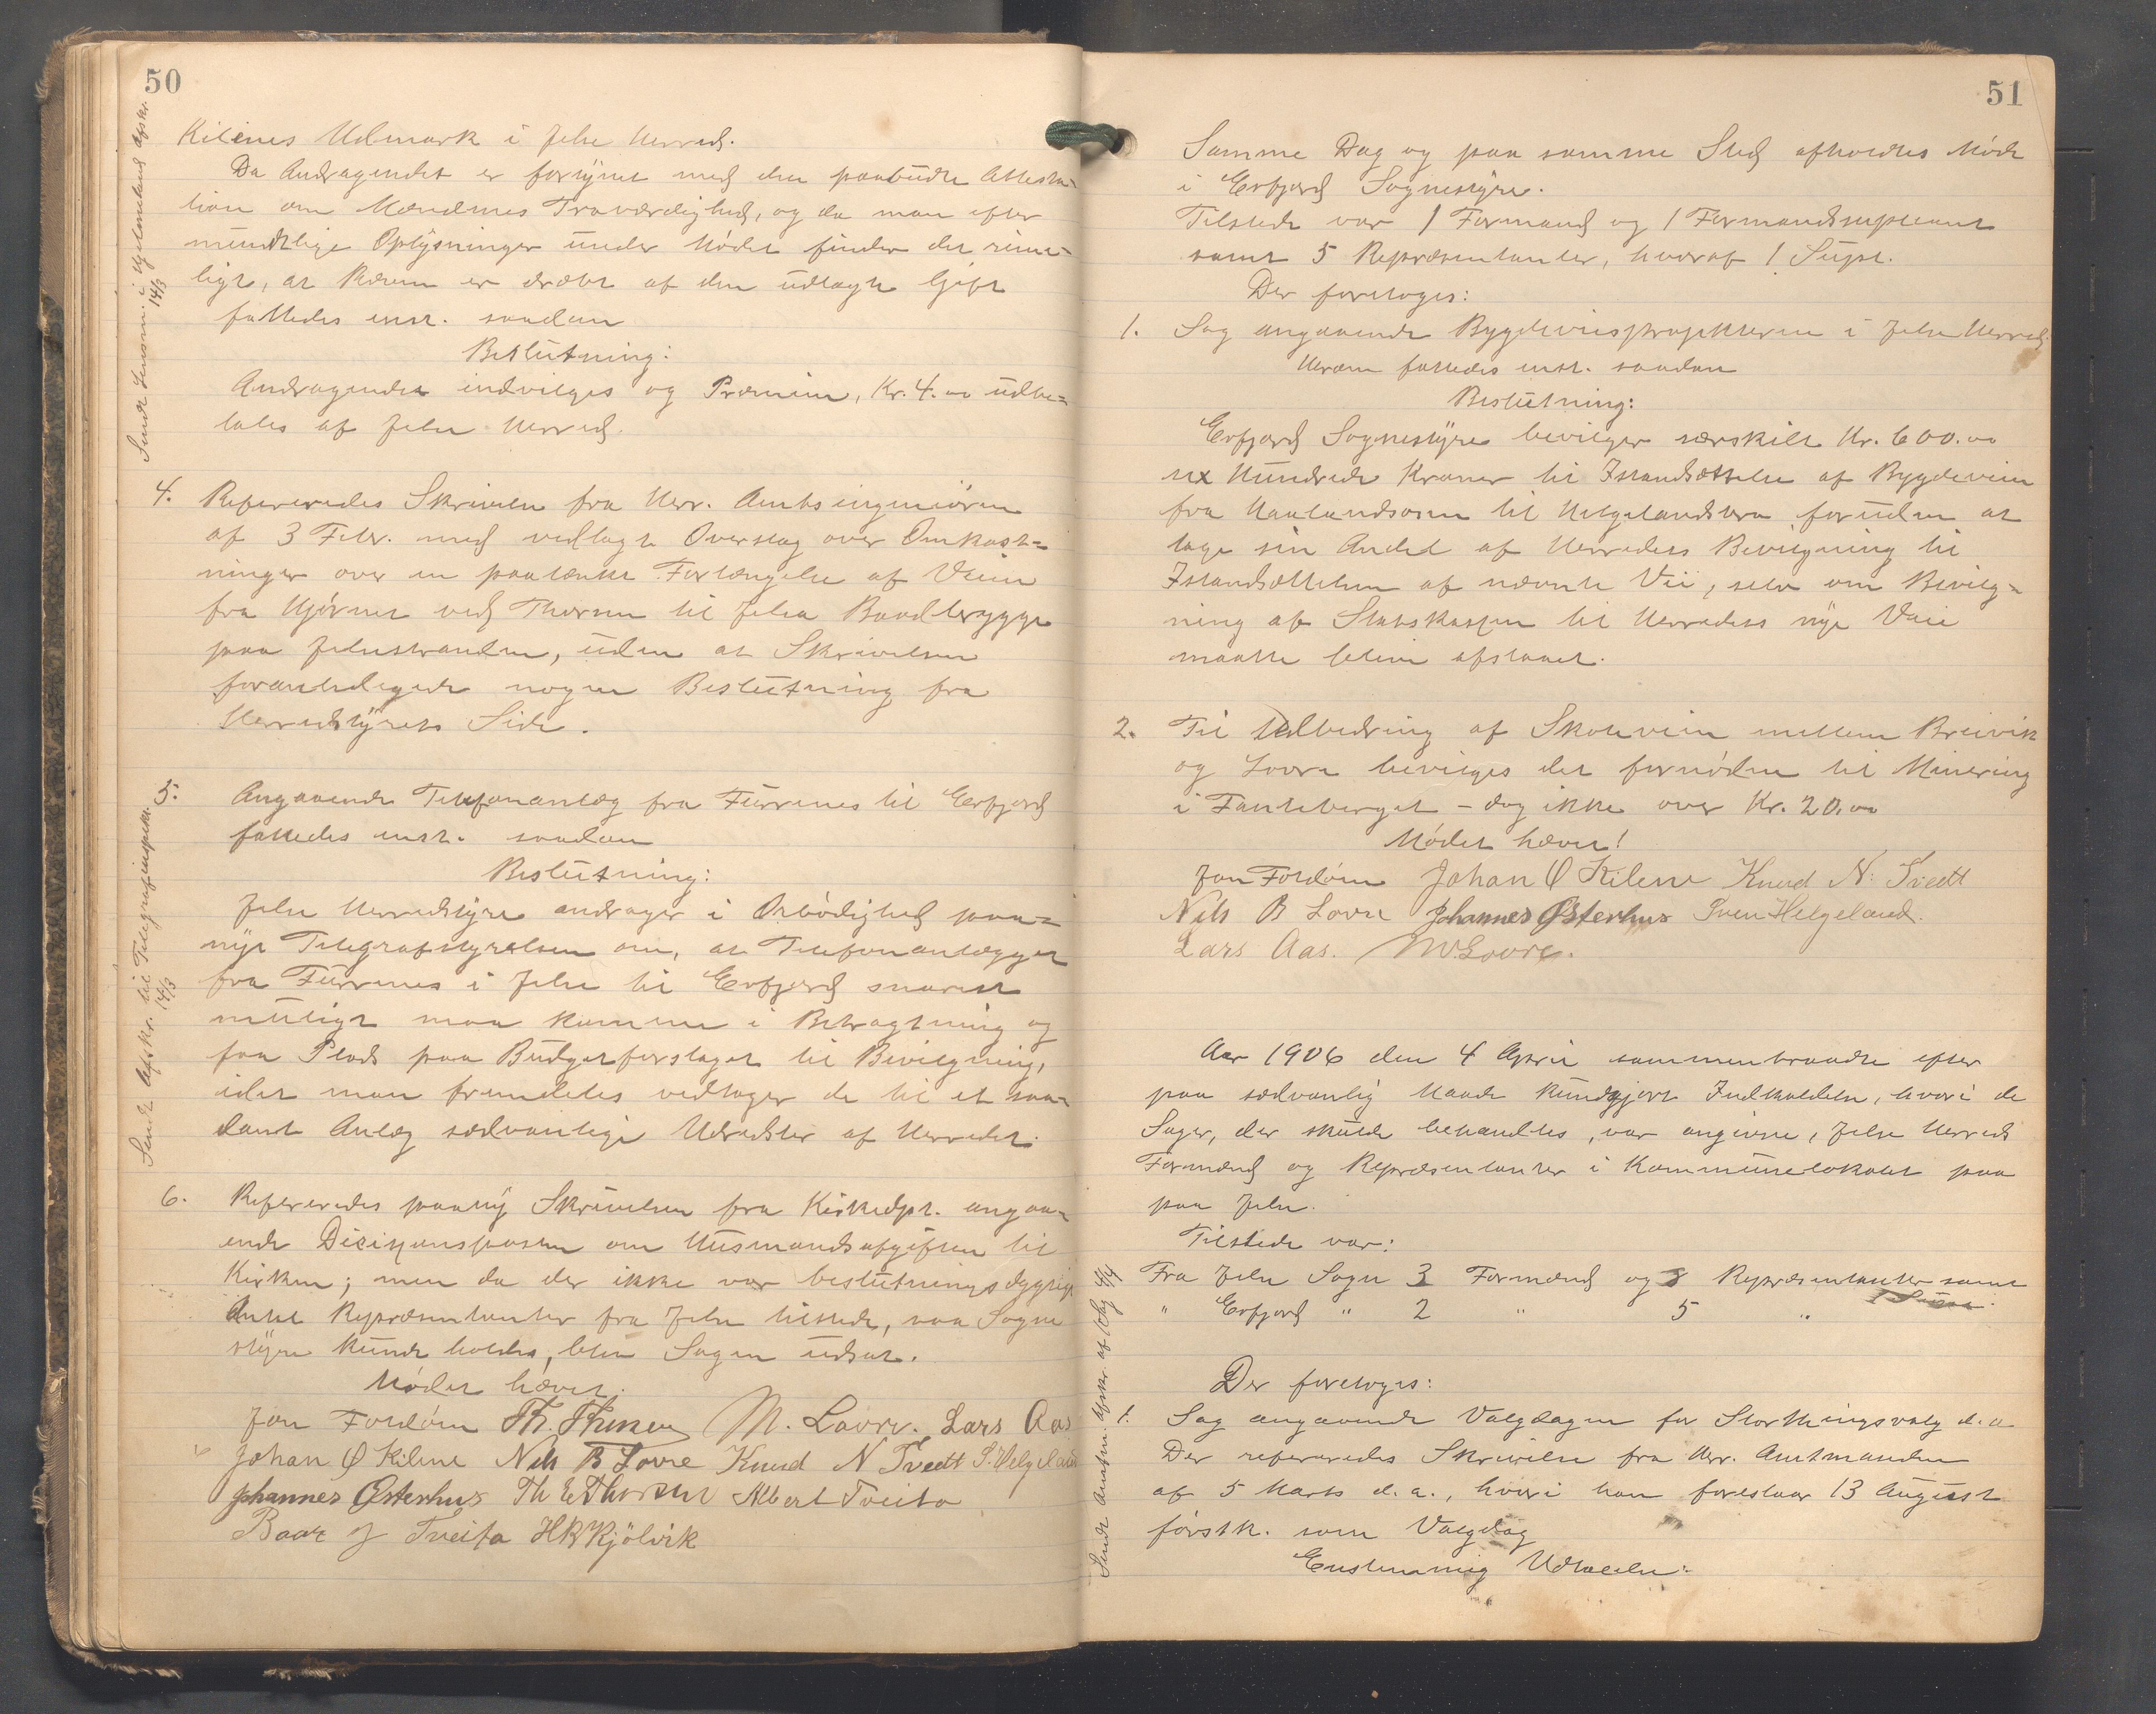 50
Kilenes Udmark i Jelse Herred.
Da Andragendet er forsynet med den paabudte Attesta-
tion om Mændenes Troværdighed, og da man efter
mundtlige Oplysninger under Mødet finder det rime-
ligt, at Ræven er dræbt af den udlagte Gift
fattedes enst. saadan
Beslutning:
Andragendet indvilges og Præmien, Kr. 4.00 udbe-
tales af Jelse Herred.
4. Refereredes Skrivelse fra Herr. Amtsingeniøren
af 3 Febr. med vedlagt Overslag over Omkost-
ninger over en paatænkt Forlængelse af Veien
fra Hjørnet ved Thorsen til Jelsa Baadbrygge
paa Jelsestranden, uden at Skrivelsen
foranledigede nogen Beslutning fra
Herredstyrets Side.
5. Angaaende Telefonanlæg fra Furrenes til Erfjord
fattedes enst. saadan
Beslutning:
Jelse Herredstyre andrager i Ærbødighed paa-
nyt Telegrafstyrelsen om, at Telefonanlægget
fra Furrenes i Jelse til Erfjord snarest
muligt maa komme i Betragtning og
faa Plads paa Budgetforslaget til Bevilgning,
idet man fremdeles vedtager de til et saa-
dant Anlæg sædvanlige Udredsler af Herredet.
6. Refereredes paany Skrivelsen fra Kirkedpt. angaa-
ende Decisionsposten om Husmandsafgiften til
Kirken; men da der ikke var beslutningsdygtigt
Antal Repræsentanter fra Jelse tilstede, saa Sogne
styre kunde holdes, blev Sagen udsat.
Mødet hævet.
Jon Foldøen Th. Thusen M. Lovre. Lars Aas
Johan Ø Kilene Nils B Lovre Knud N Tvedt S. Helgeland
Johannes Østerhus Th E Thorsen Albert Tveita
Baar J Tveita HB Kjölvik
Sendt Afskr. til Telegrafinspekt. 14/3
51
Samme Dag og paa samme Sted afholdtes Møde
i Erfjord Sognestyre.
Tilstede var 1 Formand og 1 Formandsupleant
samt 5 Repræsentanter, hvoraf 1 Supl.
Der foretoges:
1. Sag angaaende Bygdeveisprojekterne i Jelse Herred.
Herom fattedes enst. saadan
Beslutning:
Erfjord Sognestyre bevilger særskilt Kr. 600.00
sex Hundrede Kroner til Istandsættelse af Bygdeveien
fra Haalandsosen til Helgelandsbro foruden at
tage sin Andel af Herredets Bevilgning til
Istandsættelsen af nævnte Vei, selv om Bevilg-
ning af Statskassen til Herredets nye Veie
maatte bleve afslaaet.
2. Til Udbedring af Skoleveien mellem Breivik
og Lovra bevilges det fornødne til Minering
i Fanteberget - dog ikke over Kr. 20.00
Mødet hævet!
Jon Foldøen Johan Ø Kilene Knud N. Tvedt
Nils B Lovre Johannes Østerhus Sven Helgeland.
Lars Aas. M. Lovre.
Aar 1906 den 4 April sammentraadte efter
paa sædvanlig Maade kundgjort Indkaldelse, hvori de
Sager, der skulde behandles, var angivne, Jelse Herreds
Formænd og Repræsentanter i Kommunelokalet paa
paa Jelse.
Tilstede var:
Fra Jelse Sogn 3 Formænd og 8 Repræsentanter samt
1 Supl.
" Erfjord " 2 " 5 "
Der foretoges:
1. Sag angaaende Valgdagen for Storthingsvalg d.a.
Der refereredes Skrivelse fra Hr. Amtmanden
af 5 Marts d.a., hvori han foreslaar 13 August
førstk. som Valgdag
Enstemmig Udtalelse:
Sendt Amtm. Afskr. af